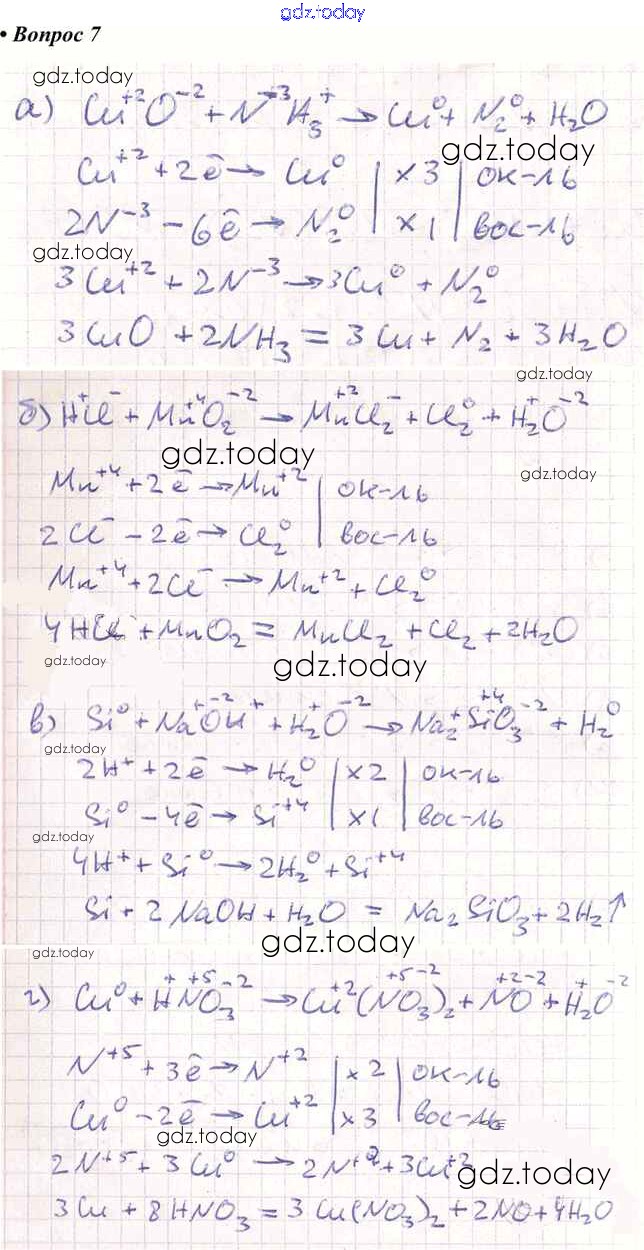 gdz.today
• Вопрос 7
gdz.today
а) Cu⁺²O⁻² + N⁻³H₃⁺ → Cu⁰ + N₂⁰ + H₂O
gdz.today
Cu⁺² + 2ē → Cu⁰ | ×3 | ок-ль
2N⁻³ − 6ē → N₂⁰ | ×1 | вос-ль
gdz.today
3Cu⁺² + 2N⁻³ → 3Cu⁰ + N₂⁰
3CuO + 2NH₃ = 3Cu + N₂ + 3H₂O
gdz.today
б) H⁺Cl⁻ + Mn⁺⁴O₂⁻² → Mn⁺²Cl₂⁻ + Cl₂⁰ + H₂⁺O⁻²
gdz.today
gdz.today
Mn⁺⁴ + 2ē → Mn⁺² | ок-ль
2Cl⁻ − 2ē → Cl₂⁰ | вос-ль
Mn⁺⁴ + 2Cl⁻ → Mn⁺² + Cl₂⁰
4HCl + MnO₂ = MnCl₂ + Cl₂ + 2H₂O
gdz.today
gdz.today
в) Si⁰ + Na⁺O⁻²H⁺ + H₂⁺O⁻² → Na₂⁺Si⁺⁴O₃⁻² + H₂⁰
gdz.today
2H⁺ + 2ē → H₂⁰ | ×2 | ок-ль
Si⁰ − 4ē → Si⁺⁴ | ×1 | вос-ль
gdz.today
4H⁺ + Si⁰ → 2H₂⁰ + Si⁺⁴
Si + 2NaOH + H₂O = Na₂SiO₃ + 2H₂↑
gdz.today
gdz.today
г) Cu⁰ + H⁺N⁺⁵O₃⁻² → Cu⁺²(N⁺⁵O₃⁻²)₂ + N⁺²O⁻² + H₂⁺O⁻²
N⁺⁵ + 3ē → N⁺² | ×2 | ок-ль
Cu⁰ − 2ē → Cu⁺² | ×3 | вос-ль
gdz.today
2N⁺⁵ + 3Cu⁰ → 2N⁺² + 3Cu⁺²
gdz.today
3Cu + 8HNO₃ = 3Cu(NO₃)₂ + 2NO + 4H₂O